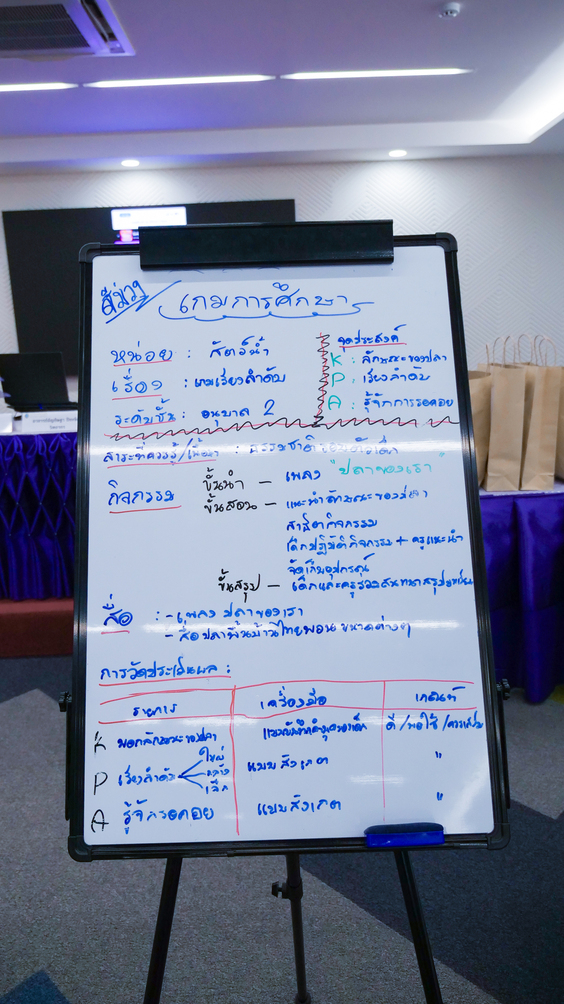 สีม่วง
เกมการศึกษา
หน่วย : สัตว์น้ำ
เรื่อง : เกมเรียงลำดับ
ระดับชั้น : อนุบาล 2
จุดประสงค์
K : ลักษณะของปลา
P : เรียงลำดับ
A : รู้จักการรอคอย
สาระที่ควรรู้/เนื้อหา : ธรรมชาติรอบตัวเด็ก
กิจกรรม
ขั้นนำ – เพลง "ปลาของเรา"
ขั้นสอน – แนะนำลักษณะของปลา
สาธิตกิจกรรม
เด็กปฏิบัติกิจกรรม + ครูแนะนำ
จัดเก็บอุปกรณ์
ขั้นสรุป – เด็กและครูร่วมสนทนาสรุป
สื่อ : - เพลง ปลาของเรา
- สื่อปลาพื้นบ้านไทย ขนาดต่างๆ
การวัดประเมินผล :
รายการ เครื่องมือ เกณฑ์
K บอกลักษณะของปลา แบบบันทึกคำพูดของเด็ก ดี /พอใช้ /ควรเสริม
P เรียงลำดับ ใหญ่ กลาง เล็ก แบบสังเกต "
A รู้จักรอคอย แบบสังเกต "